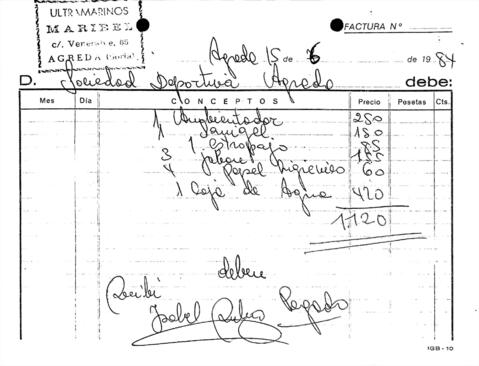 ULTRAMARINOS
MARIBEL
c/. Venerable, 65
AGREDA (Soria)
FACTURA Nº
Agreda 15 de 6 de 1984
D. Sociedad Deportiva Agreda debe:
Mes Día CONCEPTOS Precio Pesetas Cts.
1 Ambientador 250
1 Sanigel 180
1 estropajo 85
3 jabon
4 Papel Higienico 60
1 Caja de Agua 420
1120
deben
Recibi Pagado
Isabel Rubio
IGB - 10